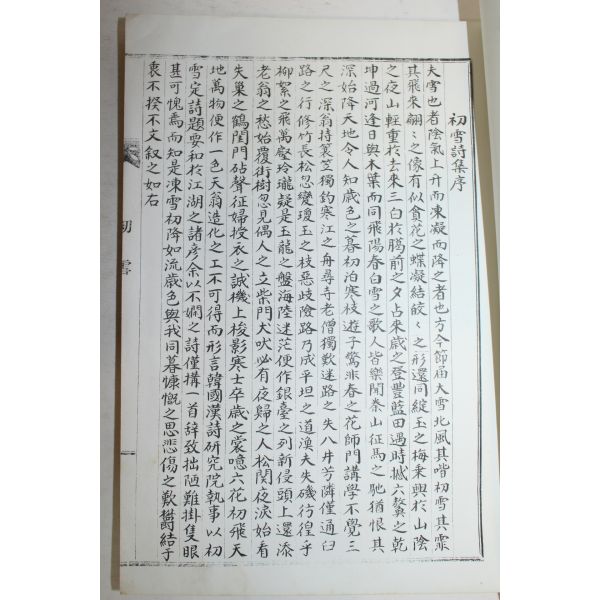 初雪詩集序
夫雪也者陰氣上升而凍凝而降之者也方今節屆大雪北風其喈初雪其霏
其飛來翩〻之像有似貪花之蝶凝結皎〻之形還同綻玉之梅乘興於山陰
之夜山輕重於去來三白於臈前之夕占來歲之登豐藍田遇時撼六鰲之乾
坤過河逢日與木葉而同飛陽春白雪之歌人皆樂聞秦山征馬之馳猶恨其
深始降天地令人知歲色之暮初泊寒枝遊子驚非春之花師門講學不覺三
尺之深翁持簑笠獨釣寒江之舟尋寺老僧獨歎迷路之失八井芳隣僅通臼
路之行修竹長松忽變瓊玉之枝惡歧險路乃成平坦之道漁夫失磯彷徨乎
柳絮之飛萬壑玲瓏疑是玉龍之盤海陸迷茫便作銀臺之列新侵頭上還添
老翁之愁始覆街樹忽見偶人之立柴門犬吠必有夜歸之人松関夜淚始看
失巢之鶴閨門砧聲征婦授衣之誠機上梭影寒士卒歲之裳噫六花初飛天
地萬物便作一色天翁造化之工不可得而形言韓國漢詩研究院執事以初
雪定詩題要和於江湖之諸彦余以不嫻之詩僅搆一首辞致拙陋難掛隻眼
甚可愧焉而知是凍雪初降如流歲色與我同暮慷慨之思悲傷之歎欝結于
衷不揆不文叙之如右
初雪